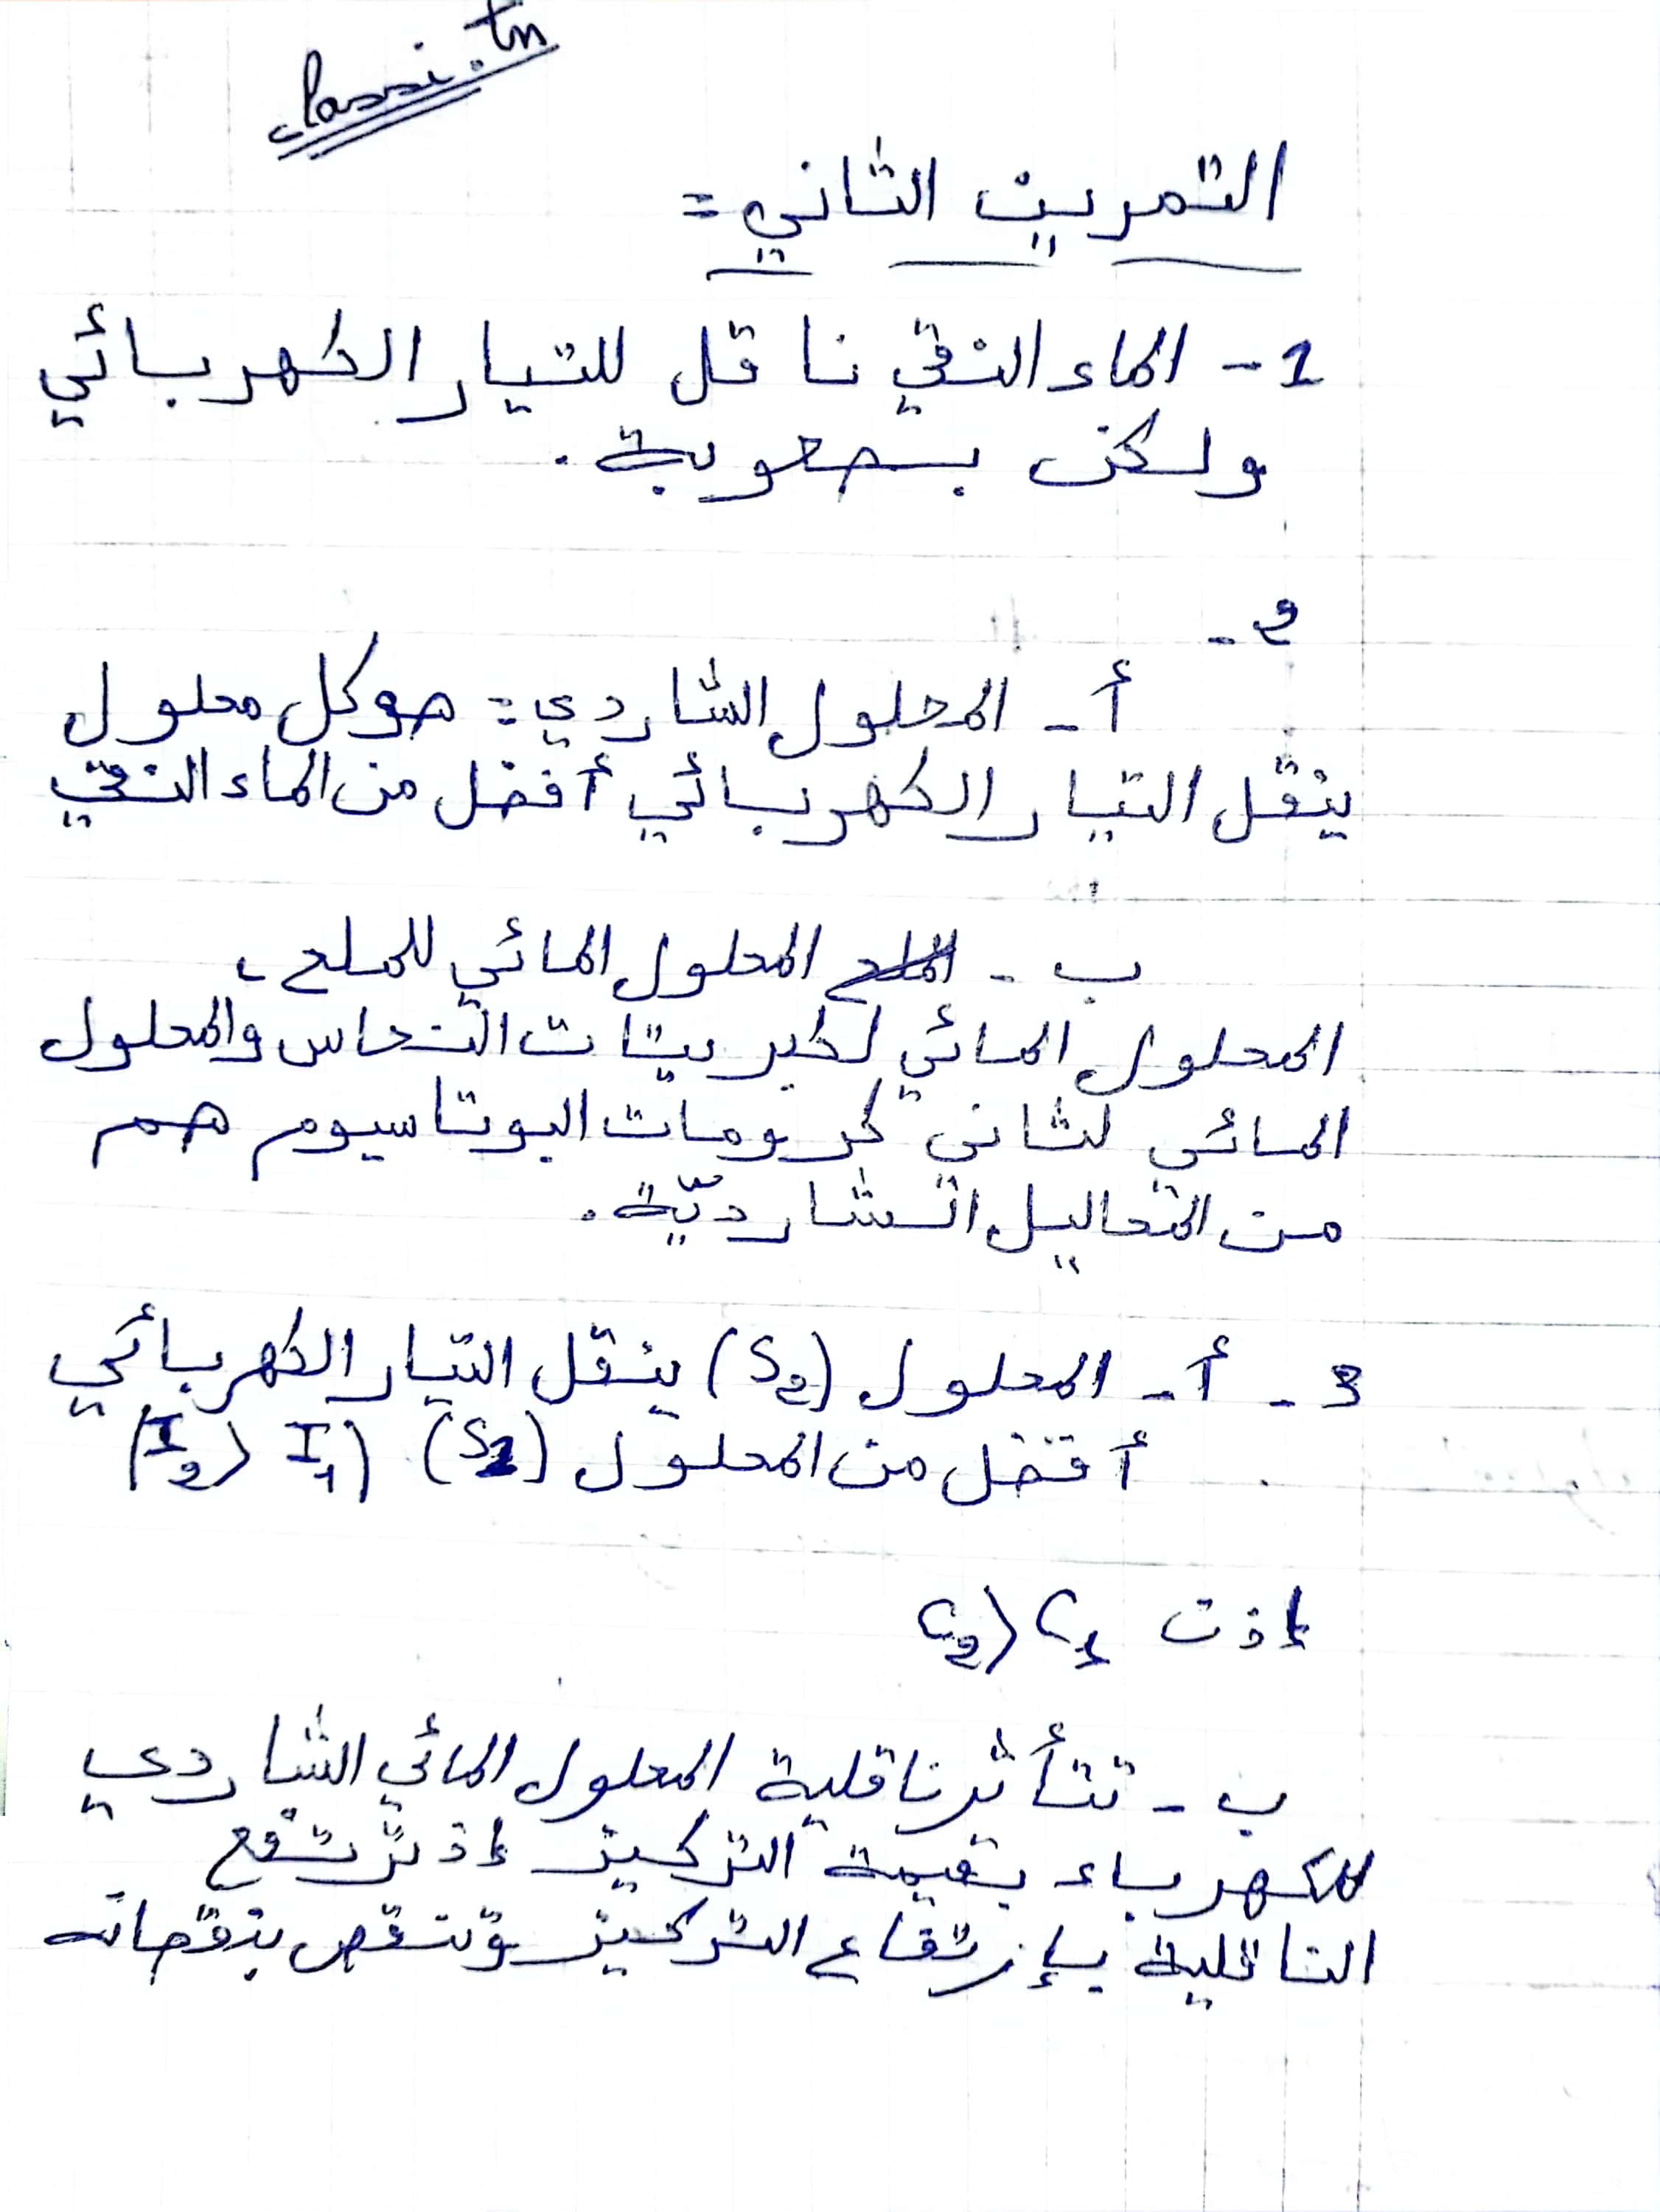 classi.tn
التمرين الثاني =
1 - الماء النقي ناقل للتيار الكهربائي
ولكن بصعوبة.
2 -
أ - المحلول الشاردي = هو كل محلول
ينقل التيار الكهربائي أفضل من الماء النقي
ب - المحلول المائي للملح،
المحلول المائي لكبريتات النحاس والمحلول
المائي لثاني كرومات البوتاسيوم هم
من المحاليل الشارديّة.
3 - أ - المحلول (S2) ينقل التيار الكهربائي
أفضل من المحلول (S1) (I2 > I1)
إذن C2 > C1
ب - تتأثر ناقلية المحلول المائي الشاردي
للكهرباء بقيمة التركيز إذ ترتفع
الناقلية بإرتفاع التركيز وتنقص بنقصانه